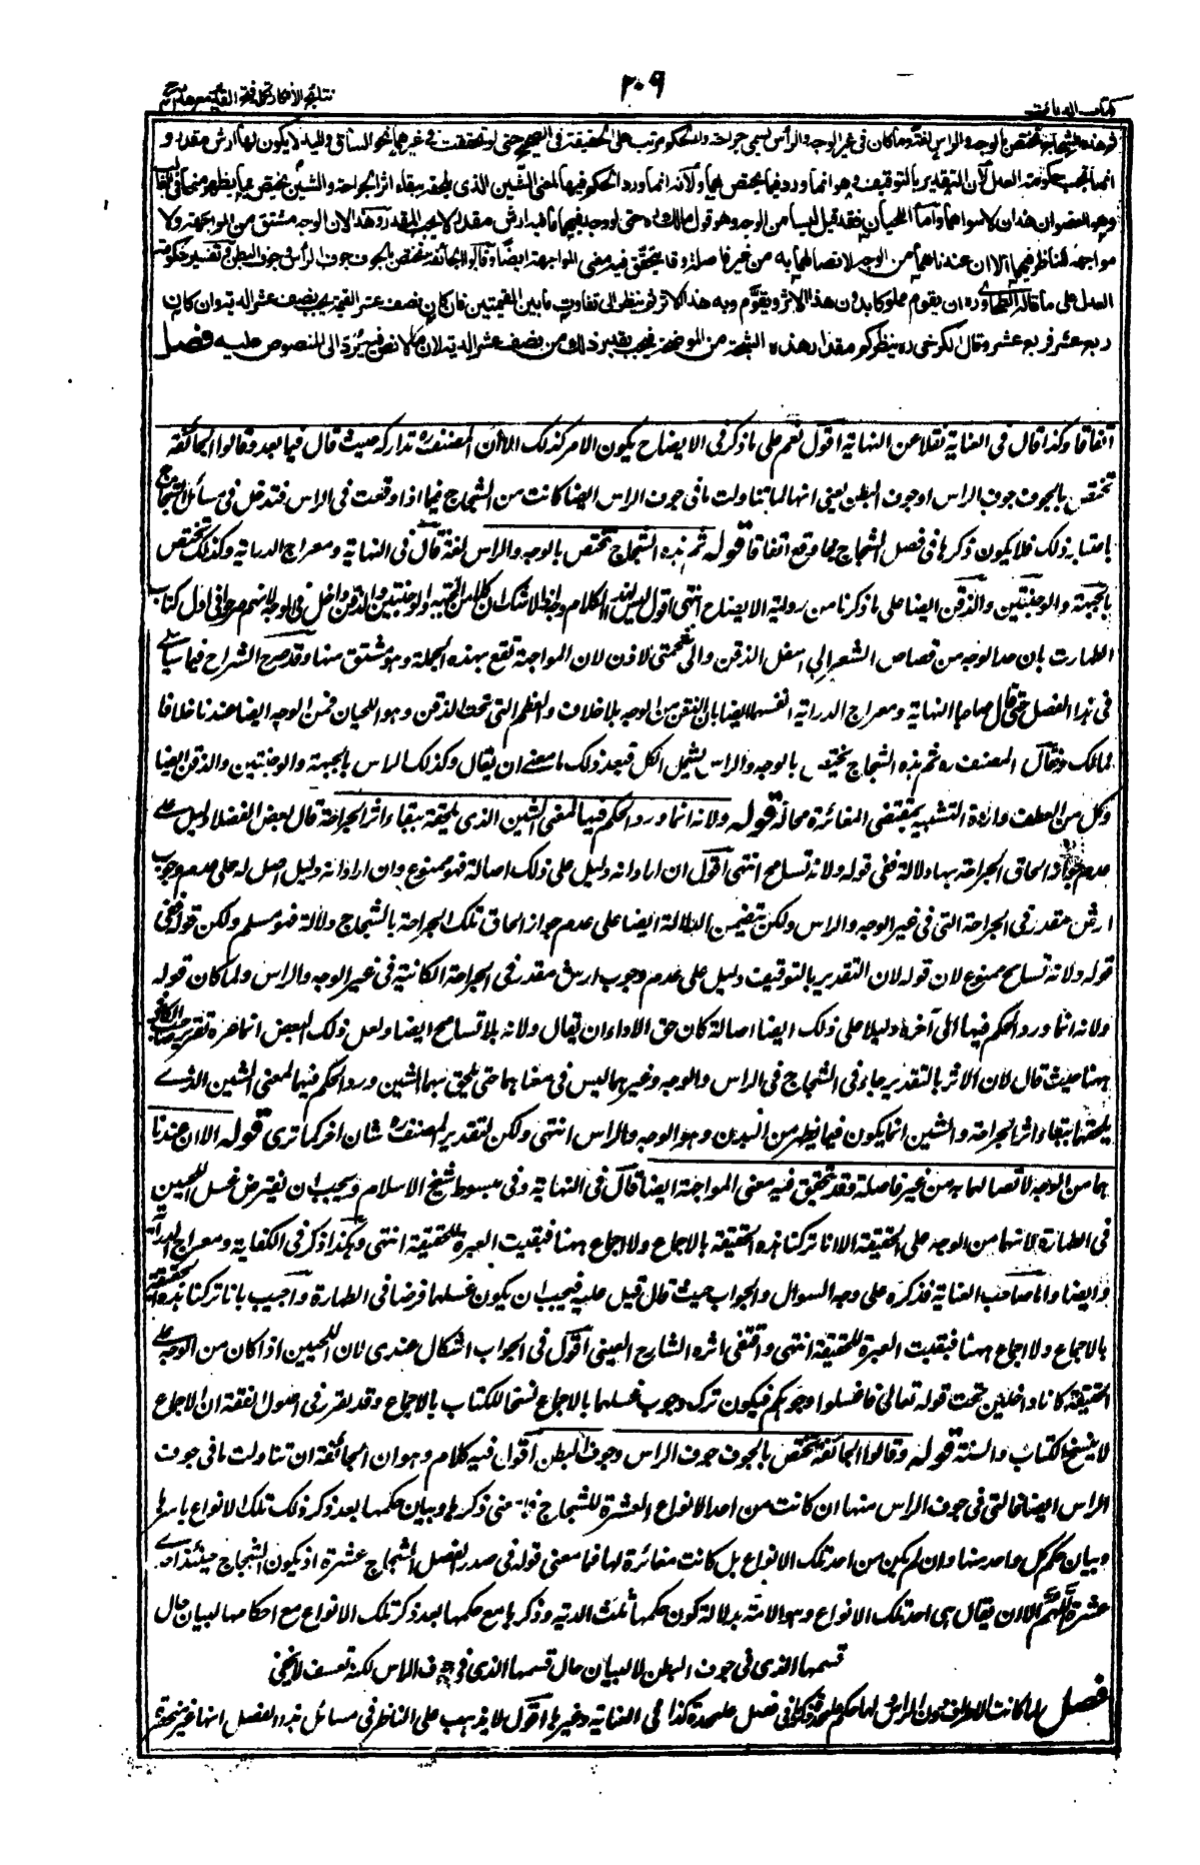 كتاب الديات
٢٠٩
نتائج الأفكار تكملة فتح القدير مع هداية
ثم هذه الشجاج تختص بالوجه والراس لغة وما كان في غير الوجه والرأس يسمى جراحة والحكم مرتب على الحقيقة في الصحيح حتى لو تحققت في غيرهما نحو الساق واليد لا يكون لها أرش مقدر و
انما تجب حكومة العدل لان التقدير بالتوقيف وهو انما ورد فيما يختص بهما ولانه انما ورد الحكم فيها لمعنى الشين الذي يلحقه ببقاء اثر الجراحة والشين يختص بما يظهر منها في الغالب
وهو العضوان هذان لا سواهما وأما اللحيان فقد قيل ليسا من الوجه وهو قول مالك ره حتى لو وجد فيهما ما فيه ارش مقدر لا يجب المقدر وهذا لان الوجه مشتق من المواجهة ولا
مواجهة للناظر فيهما الا ان عندنا هما من الوجه لاتصالهما به من غير فاصلة وقد يتحقق فيه معنى المواجهة ايضا وقالوا الجائفة تختص بالجوف جوف الرأس او جوف البطن وتفسير حكومة
العدل على ما قاله الطحاوي ره ان يقوم مملوكا بدون هذا الاثر ويقوم وبه هذا الاثر ثم ينظر الى تفاوت ما بين القيمتين فان كان نصف عشر القيمة يجب نصف عشر الدية وان كان
ربع عشر فربع عشر وقال الكرخي ره ينظر كم مقدار هذه الشجة من الموضحة فيجب بقدر ذلك من نصف عشر الدية لان ما لا نص فيه يُرَدّ الى المنصوص عليه فصل
اتفاقا وكذا قال في العناية نقلا عن النهاية أقول نعم على ما ذكر في الايضاح يكون الامر كذلك الا أن المصنف ره تداركه حيث قال فيما بعد وقالوا الجائفة
تختص بالجوف جوف الراس او جوف البطن يعني انها لما تناولت ما في جوف الراس ايضا كانت من الشجاج فيما اذا وقعت في الراس فتدخل في مسائل الشجاج
باعتبار ذلك فلا يكون ذكرها في فصل الشجاج مما وقع اتفاقا قوله ثم هذه الشجاج تختص بالوجه والراس لغة قال في النهاية ومعراج الدراية وكذلك تختص
بالجبهة والوجنتين والذقن ايضا على ما ذكرنا من رواية الايضاح انتهى أقول ليس لهذا الكلام وجه اذ لا شك ان كلا من الجبهة والوجنتين والذقن داخل في الوجه لانهم صرحوا في اول كتاب
الطهارت بان حد الوجه من قصاص الشعر الى اسفل الذقن والى شحمتي الاذن لان المواجهة تقع بهذه الجملة وهو مشتق منها وقد صرح الشراح فيما سيأتي
في هذا الفصل حتى قال صاحبا النهاية ومعراج الدراية انفسهما ايضا بان الذقن من الوجه بلا خلاف والعظم التي تحت الذقن وهو اللحيان فمن الوجه ايضا عندنا خلافا
لمالك فقال المصنف ره ثم هذه الشجاج تختص بالوجه والراس يشمل الكل فبعد ذلك ما معنى ان يقال وكذلك الراس بالجبهة والوجنتين والذقن ايضا
وكل من العطف واداة التشبيه يقتضي المغائرة محالة قوله ولانه انما ورد الحكم فيها لمعنى الشين الذي يلحقه ببقاء اثر الجراحة قال بعض الفضلاء دليل على
عدم جواز الحاق الجراحة بها دلالة ففي قوله ولانه تسامح انتهى أقول ان اراد انه دليل على ذلك اصالة فهو ممنوع وان اراد انه دليل اصل له على عدم وجوب
ارش مقدر في الجراحة التي في غير الوجه والراس ولكن تتضمن الدلالة ايضا على عدم جواز الحاق تلك الجراحة بالشجاج دلالة فهو مسلم ولكن قوله ففي
قوله ولانه تسامح ممنوع لان قوله لان التقدير بالتوقيف دليل على عدم وجوب ارش مقدر في الجراحة الكائنة في غير الوجه والراس ولما كان قوله
ولانه انما ورد الحكم فيها الى آخره دليلا على ذلك ايضا اصالة كان حق الاداء ان يقال ولانه بلا تسامح ايضا ولعل ذلك البعض انما غره تقرير صاحب الكافي
ههنا حيث قال لان الاثر بالتقدير جاء في الشجاج في الراس والوجه وغيرهما ليس في معناهما حتى يلحق بهما الشين ورد الحكم فيهما لمعنى الشين الذي
يلحقها ببقاء اثر الجراحة والشين انما يكون فيما يظهر من البدن وهو الوجه والراس انتهى ولكن لتقدير المصنف ره شان اخر كما ترى قوله الا ان عندنا
هما من الوجه لاتصالهما به من غير فاصلة وقد تحقق فيه معنى المواجهة ايضا قال في النهاية وفي مبسوط شيخ الاسلام ويجب ان يفترض غسل اللحيين
في الطهارة لانهما من الوجه على الحقيقة الا انا تركنا هذه الحقيقة بالاجماع ولا اجماع ههنا فبقيت العبرة للحقيقة انتهى وهكذا ذكر في الكفاية ومعراج الدراية
ايضا واما صاحب العناية فذكره على وجه السوال والجواب حيث قال قيل عليه فيجب ان يكون غسلهما فرضا في الطهارة وأجيب بانا تركنا هذه الحقيقة
بالاجماع ولا اجماع ههنا فبقيت العبرة للحقيقة انتهى واقتفى اثره الشارح العيني أقول في الجواب اشكال عندي لان اللحيين اذا كان من الوجه على
الحقيقة كانا داخلين تحت قوله تعالى فاغسلوا وجوهكم فيكون ترك وجوب غسلهما بالاجماع نسخا للكتاب بالاجماع وقد تقرر في اصول الفقه ان الاجماع
لا ينسخ الكتاب والسنة قوله وقالوا الجائفة تختص بالجوف جوف الراس وجوف البطن أقول فيه كلام وهو ان الجائفة ان تناولت ما في جوف
الراس ايضا فالتي في جوف الراس منها ان كانت من احد الانواع العشرة للشجاج فما معنى ذكرها وبيان حكمها بعد ذكر ذلك تلك الانواع باسرها
وبيان حكم كل واحد منها وان لم يكن من احد تلك الانواع بل كانت مغائرة لها فما معنى قوله في صدر الفصل الشجاج عشرة اذ يكون الشجاج حينئذ احدى
عشرة اللهم الا ان يقال هي احد تلك الانواع وهو الآمة بدلالة كون حكمها ثلث الدية وذكرها مع حكمها بعد ذكر تلك الانواع مع احكامها لبيان حال
قسمها الذي في جوف البطن لا لبيان حال قسمها الذي في جوف الراس لكنه تعسف لا يخفى
فصل لما كانت الاطراف دون الراس لها حكم على حدة ذكرها في فصل على حدة كذا في العناية وغيرها أقول لا يذهب على الناظر في مسائل هذا الفصل انها غير مختصة